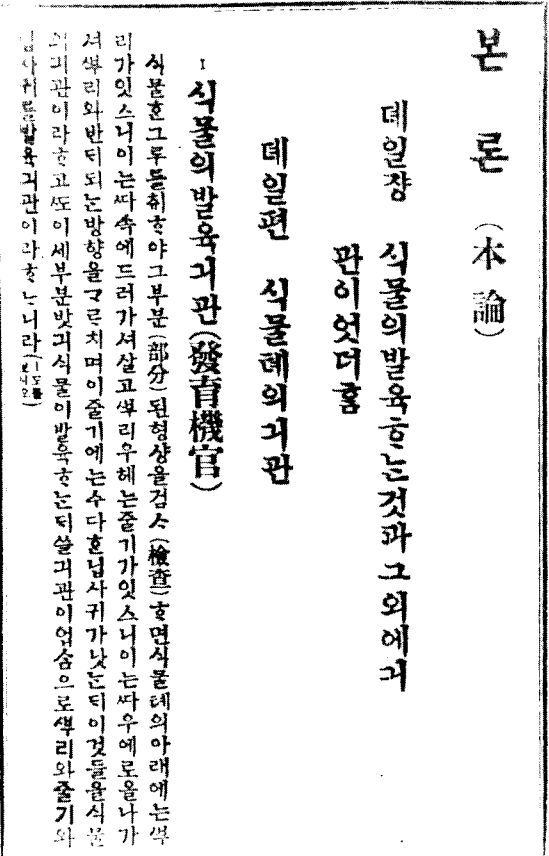 본 론 (本論)
뎨일쟝 식물의발육ᄒᆞᄂᆞᆫ것과그외에긔
관이엇더홈
뎨일편 식물톄의긔관
1 식물의발육긔관(發育機官)
식물ᄒᆞᆫ그루를취ᄒᆞ야그부분(部分)된형샹을검ᄉᆞ(檢查)ᄒᆞ면식물톄의아래에ᄂᆞᆫᄲᅮ
리가잇스니이ᄂᆞᆫᄯᅡ속에드러가셔살고ᄲᅮ리우헤ᄂᆞᆫ줄기가잇스니이ᄂᆞᆫᄯᅡ우에로올나가
셔ᄲᅮ리와반ᄃᆡ되ᄂᆞᆫ방향을ᄀᆞᄅᆞ치며이줄기에ᄂᆞᆫ수다ᄒᆞᆫ닙사귀가낫ᄂᆞᆫᄃᆡ이것들을식물
의긔관이라ᄒᆞ고ᄯᅩ이세부분밧긔식물이발육ᄒᆞᄂᆞᆫᄃᆡ쓸긔관이업슴으로ᄲᅮ리와줄기와
닙사귀를발육긔관이라ᄒᆞᄂᆞ니라